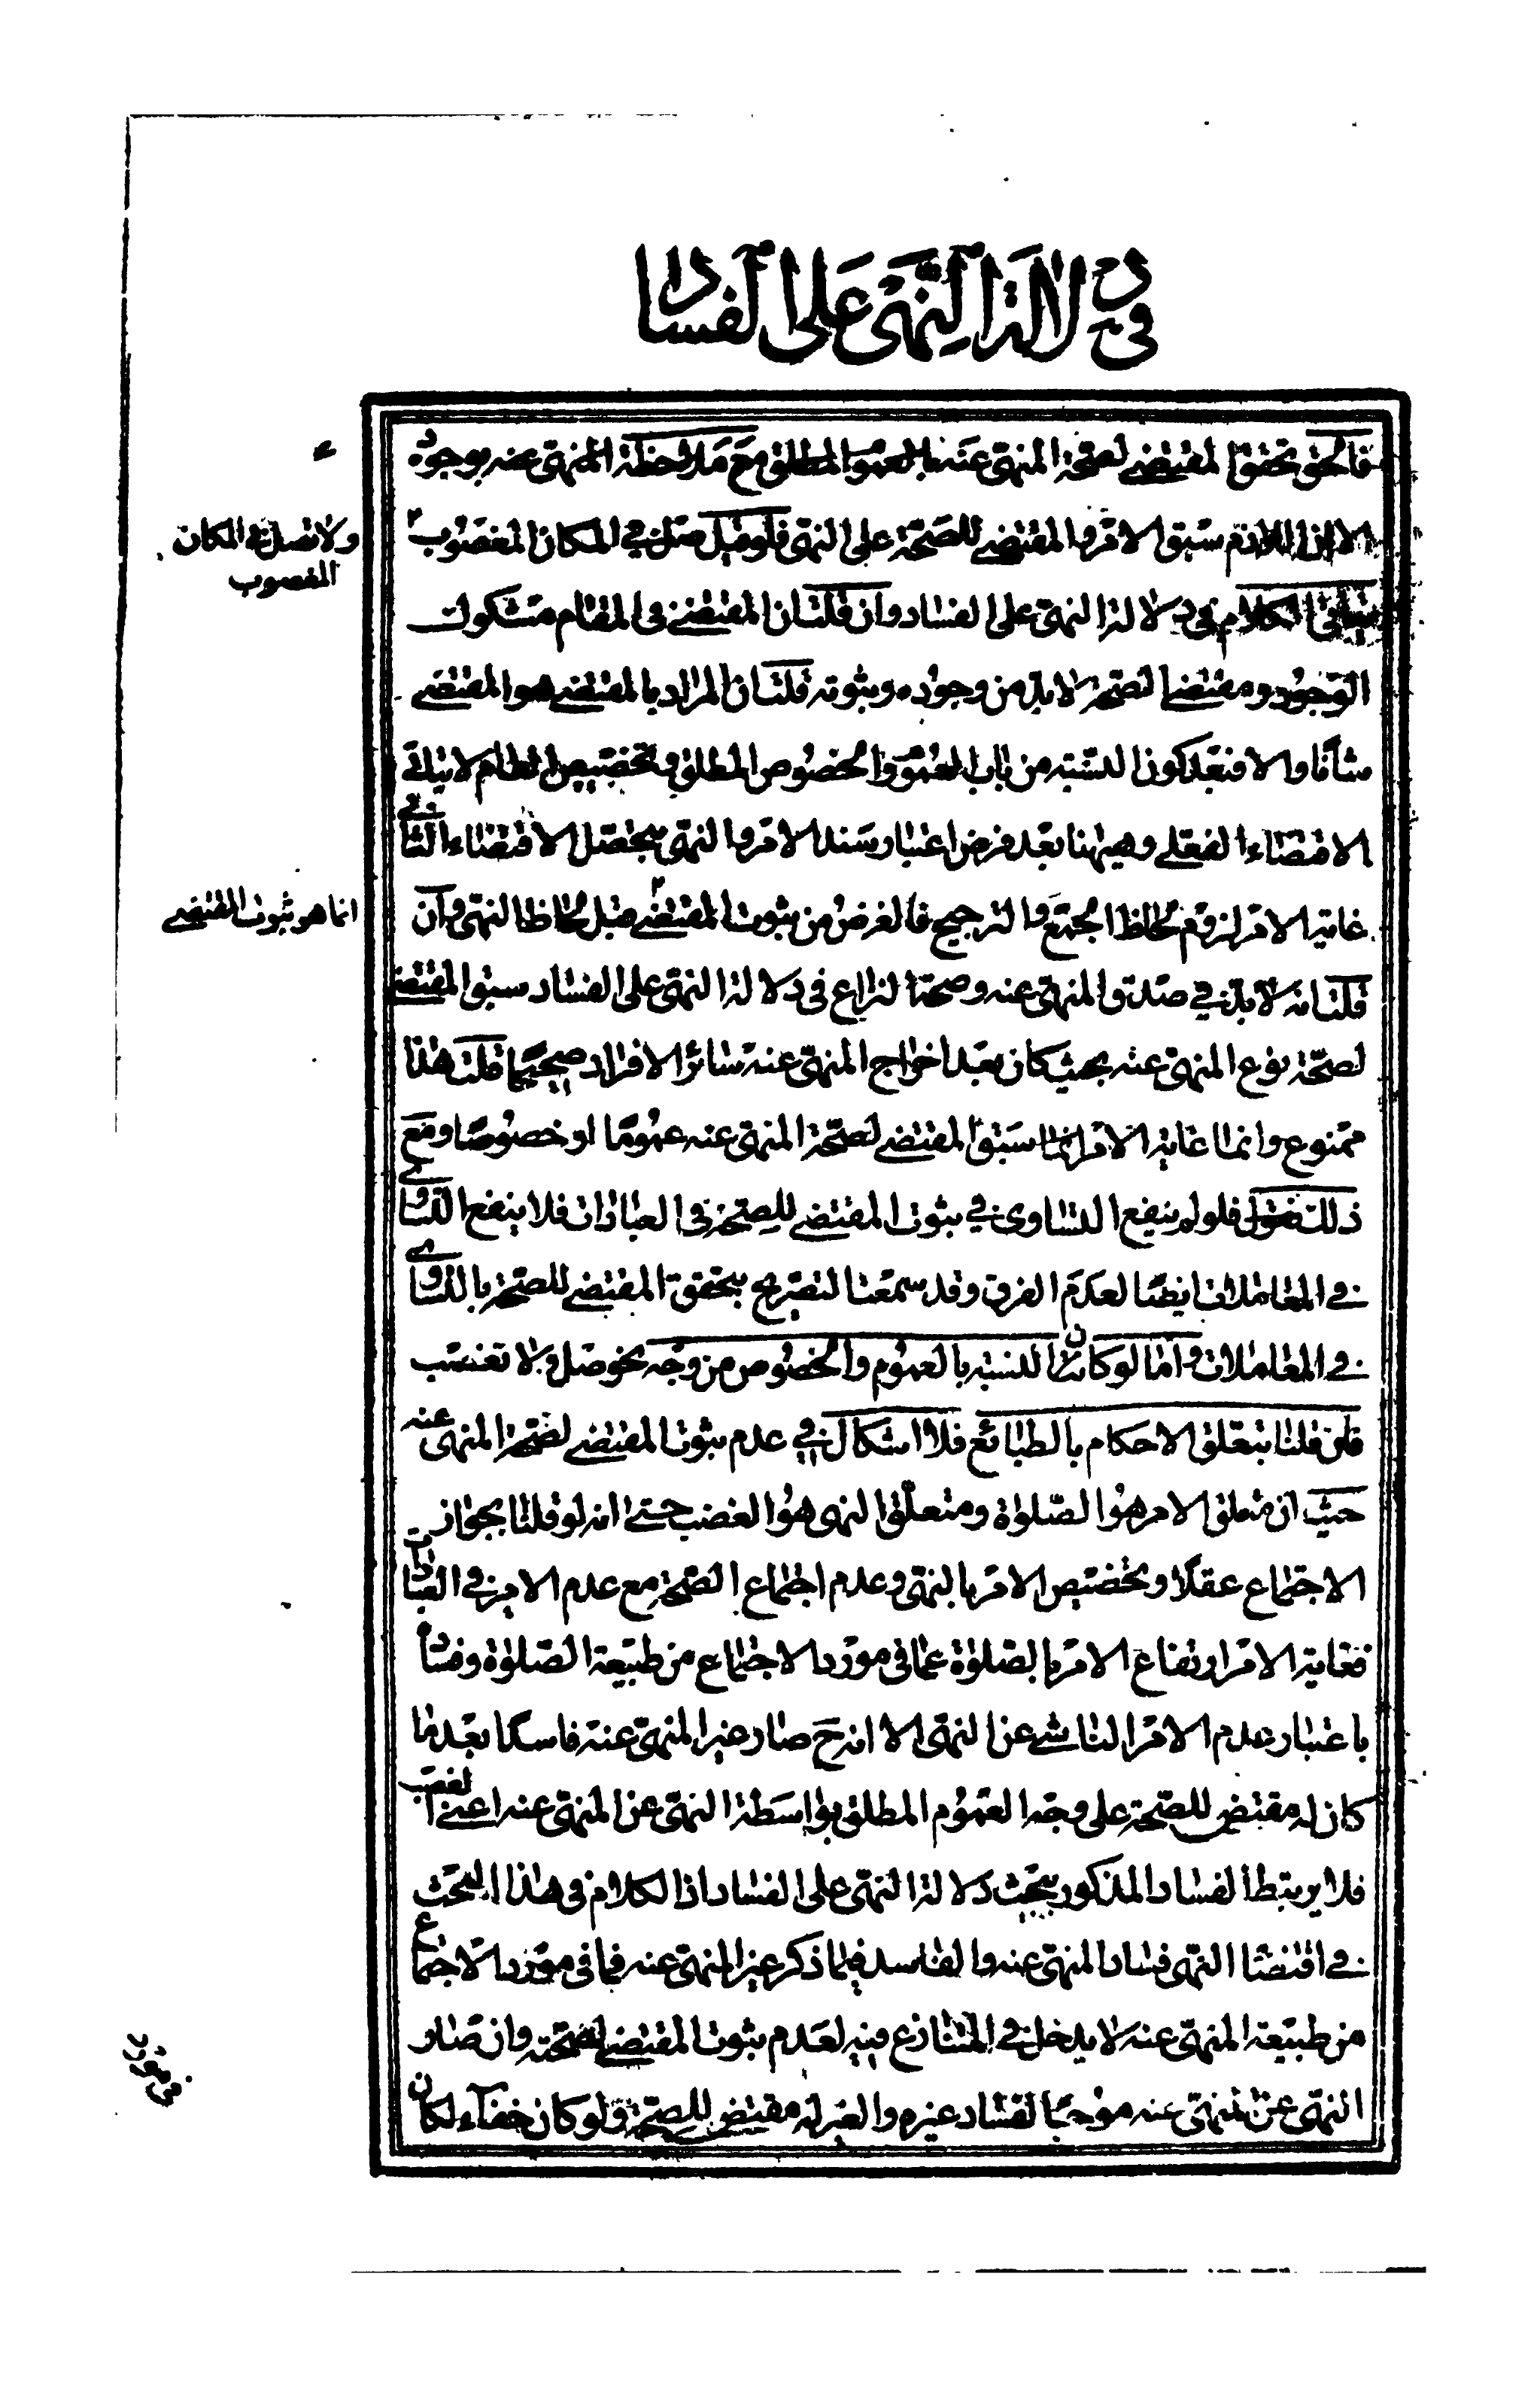 في دلالة النهى على الفساد
فالحق تحقق المقتضى لصحة المنهى عنه بالعموم المطلق مع ملاحظة المنهى عنه بوجوده
الا ان اللازم سبق الامر والمقتضى للصحة على النهى فلو قيل صل في المكان المغصوب
ولا تصل في المكان
المغصوب
يتاتى الكلام في دلالة النهى على الفساد وان قلت ان المقتضى في المقام مشكوك
الوجود ومقتضى الصحة لا بد من وجوده وثبوته قلت ان المراد بالمقتضى هو المقتضى
شأنا والا فبعد كون النسبة من باب العموم والخصوص المطلق وتخصيص العام لا يتاتى
الاقتضاء الفعلى وهيهنا بعد فرض اعتبار سند الامر والنهى يحصل الاقتضاء الشانى
غاية الامر لزوم لحاظ الجمع والترجيح فالغرض من ثبوت المقتضى قبل لحاظ النهى وان
انما هو ثبوت المقتضى
قلت انه لا بد في صدق المنهى عنه وصحة النزاع في دلالة النهى على الفساد سبق المقتضى
لصحة نوع المنهى عنه بحيث كان بعد اخراج المنهى عنه سائر الافراد صحيحا قلت هذا
ممنوع وانما غاية الامر انما سبق المقتضى لصحة المنهى عنه عموما او خصوصا ومع
ذلك نقول فلو لم ينفع التساوى في ثبوت المقتضى للصحة في العبادات فلا ينفع التساوى
في المعاملات ايضا لعدم الفرق وقد سمعت التصريح بتحقق المقتضى للصحة بالتساوى
في المعاملات واما لو كانت النسبة بالعموم والخصوص من وجه نحو صل ولا تغصب
فان قلنا بتعلق الاحكام بالطبائع فلا اشكال في عدم ثبوت المقتضى لصحة المنهى عنه
حيث ان متعلق الامر هو الصلوة ومتعلق النهى هو الغصب حتى انه لو قلنا بجواز
الاجتماع عقلا وتخصيص الامر بالنهى وعدم اجتماع الصحة مع عدم الامر في العبادات
فغاية الامر ارتفاع الامر بالصلوة عما في مورد الاجتماع من طبيعة الصلوة وفساده
باعتبار عدم الامر الناشى عن النهى الا انه ح صار غير المنهى عنه فاسدا بعد ما
كان له مقتض للصحة على وجه العموم المطلق بواسطة النهى عن المنهى عنه اعنى الغصب
فلا يرتبط الفساد المذكور ببحث دلالة النهى على الفساد اذ الكلام في هذا البحث
في اقتضاء النهى فساد المنهى عنه والفاسد فيما ذكر غير المنهى عنه فما في مورد الاجتماع
من طبيعة المنهى عنه لا يدخل في المتنازع فيه لعدم ثبوت المقتضى لصحته وان صار
النهى عن المنهى عنه موجبا لفساد غيره والغير له مقتض للصحة ولو كان خفاء لكان